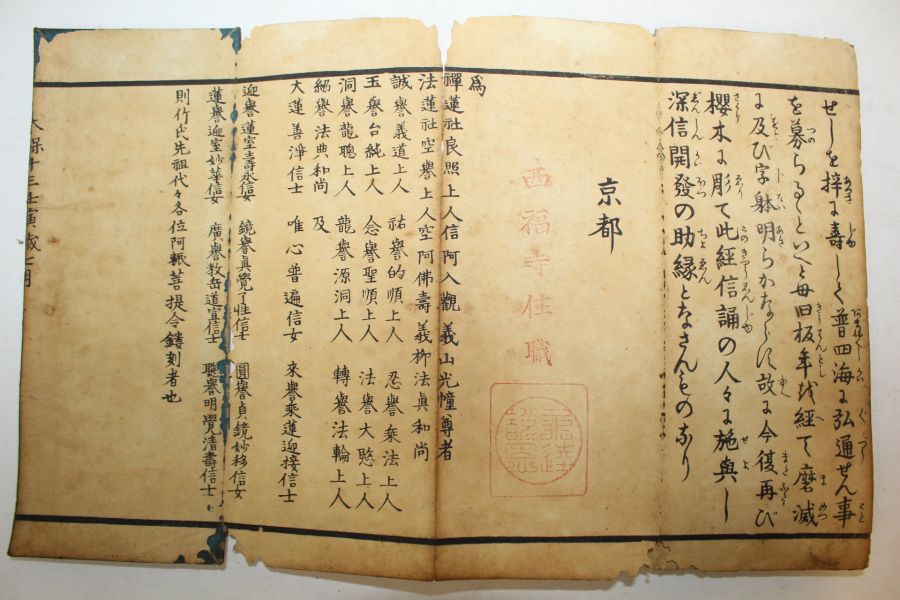 せしを梓に壽しく普四海に弘通せん事
を募らるゝといへ毋旧板年を経て磨滅
に及び字躰明らかならず故に今復再び
櫻木に彫て此經信誦の人々に施與し
深信開發の助縁となさんものなり
京都
西福寺住職
為
禪蓮社良照上人信阿入觀義山光幢尊者
法蓮社空譽上人空阿佛壽義柳法眞和尚
誠譽義道上人 祐譽的順上人 忍譽乗法上人
玉譽台純上人 念譽聖順上人 法譽大愍上人
洞譽龍聰上人 龍譽源洞上人 轉譽法輪上人
絕譽法典和尚 及
大蓮善淨信士 唯心普遍信女 來譽乘蓮迎接信士
迎譽蓮室壽永信女 鏡譽眞覺了性信士 圓譽貞鏡妙移信女
蓮譽迎室妙華信女 廣譽教岳道宜信士 聰譽明覺清壽信士
則竹氏先祖代々各位阿耨菩提令鏤刻者也
天保十三壬寅歳七月